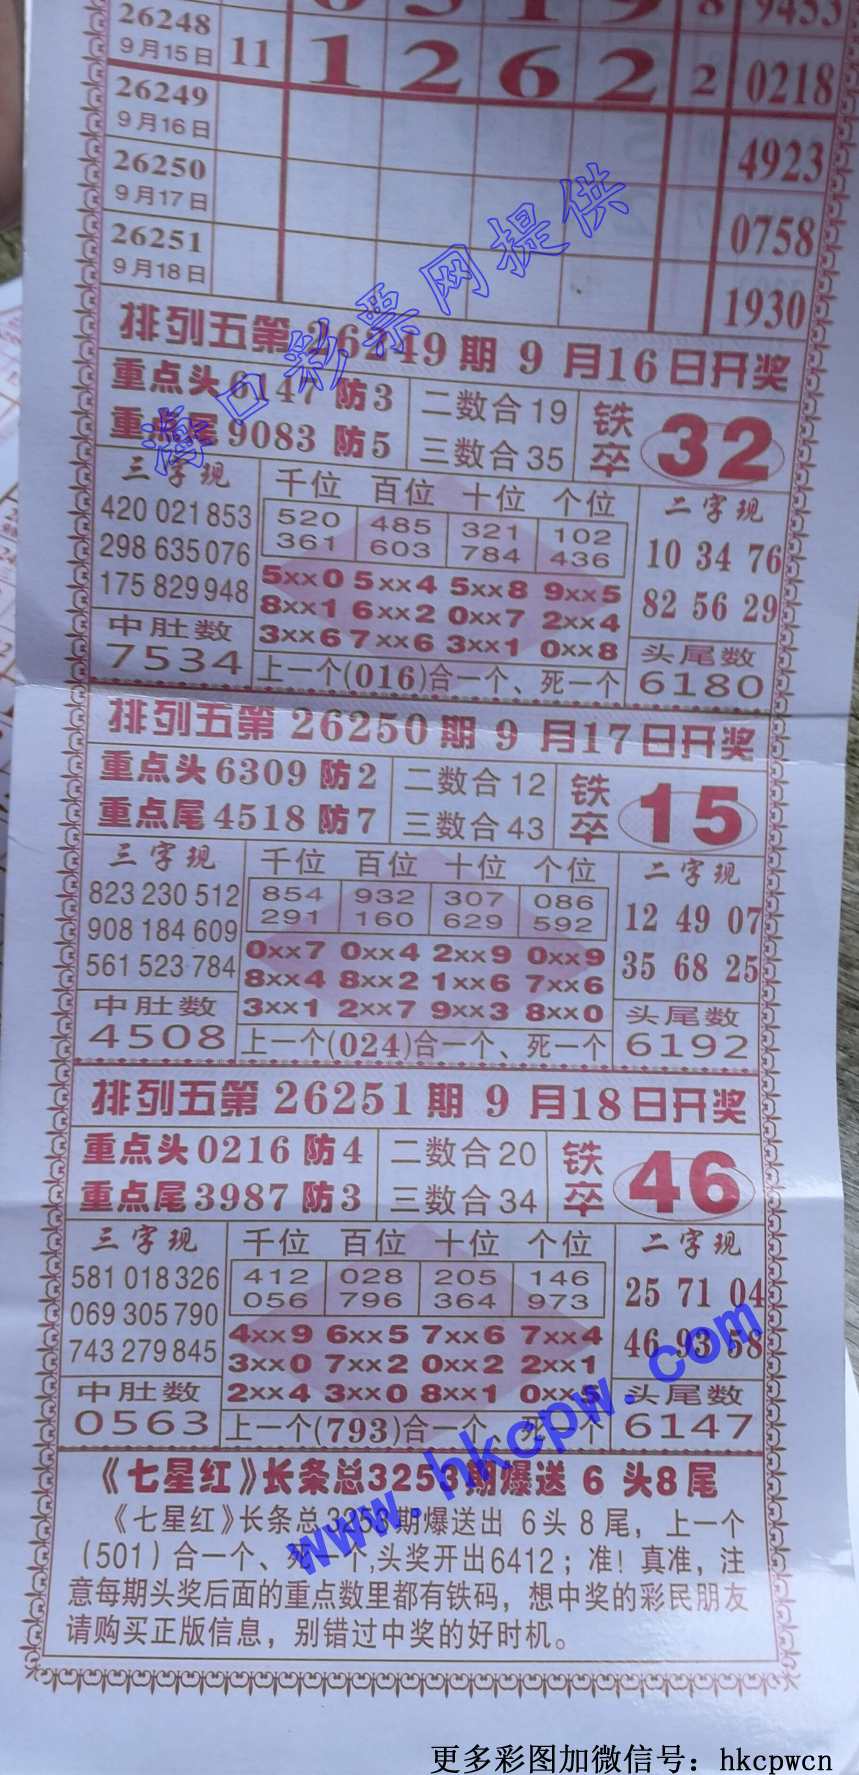 26248 0319 8 9453
9月15日 11 1 2 6 2 2 0218
26249
9月16日 4923
26250
9月17日 0758
26251
9月18日 1930
海口彩票网提供
排列五第26249期 9月16日开奖
重点头6147防3 二数合19 铁卒 32
重点尾9083防5 三数合35
三字现 千位 百位 十位 个位 二字现
420 021 853 520 485 321 102
298 635 076 361 603 784 436 10 34 76
175 829 948 5xx0 5xx4 5xx8 9xx5 82 56 29
中肚数 8xx1 6xx2 0xx7 2xx4
7534 3xx6 7xx6 3xx1 0xx8 头尾数
上一个(016)合一个、死一个 6180
排列五第26250期 9月17日开奖
重点头6309防2 二数合12 铁卒 15
重点尾4518防7 三数合43
三字现 千位 百位 十位 个位 二字现
823 230 512 854 932 307 086
908 184 609 291 160 629 592 12 49 07
561 523 784 0xx7 0xx4 2xx9 0xx9 35 68 25
中肚数 8xx4 8xx2 1xx6 7xx6
4508 3xx1 2xx7 9xx3 8xx0 头尾数
上一个(024)合一个、死一个 6192
排列五第26251期 9月18日开奖
重点头0216防4 二数合20 铁卒 46
重点尾3987防3 三数合34
三字现 千位 百位 十位 个位 二字现
581 018 326 412 028 205 146
069 305 790 056 796 364 973 25 71 04
743 279 845 4xx9 6xx5 7xx6 7xx4 46 93 58
中肚数 3xx0 7xx2 0xx2 2xx1
0563 2xx4 3xx0 8xx1 0xx5 头尾数
上一个(793)合一个、死一个 6147
www.hkcpw.com
《七星红》长条总3253期爆送 6 头8 尾
《七星红》长条总3253期爆送出 6头8尾，上一个
(501)合一个、死一个,头奖开出6412；准！真准，注
意每期头奖后面的重点数里都有铁码，想中奖的彩民朋友
请购买正版信息，别错过中奖的好时机。
更多彩图加微信号：hkcpwcn